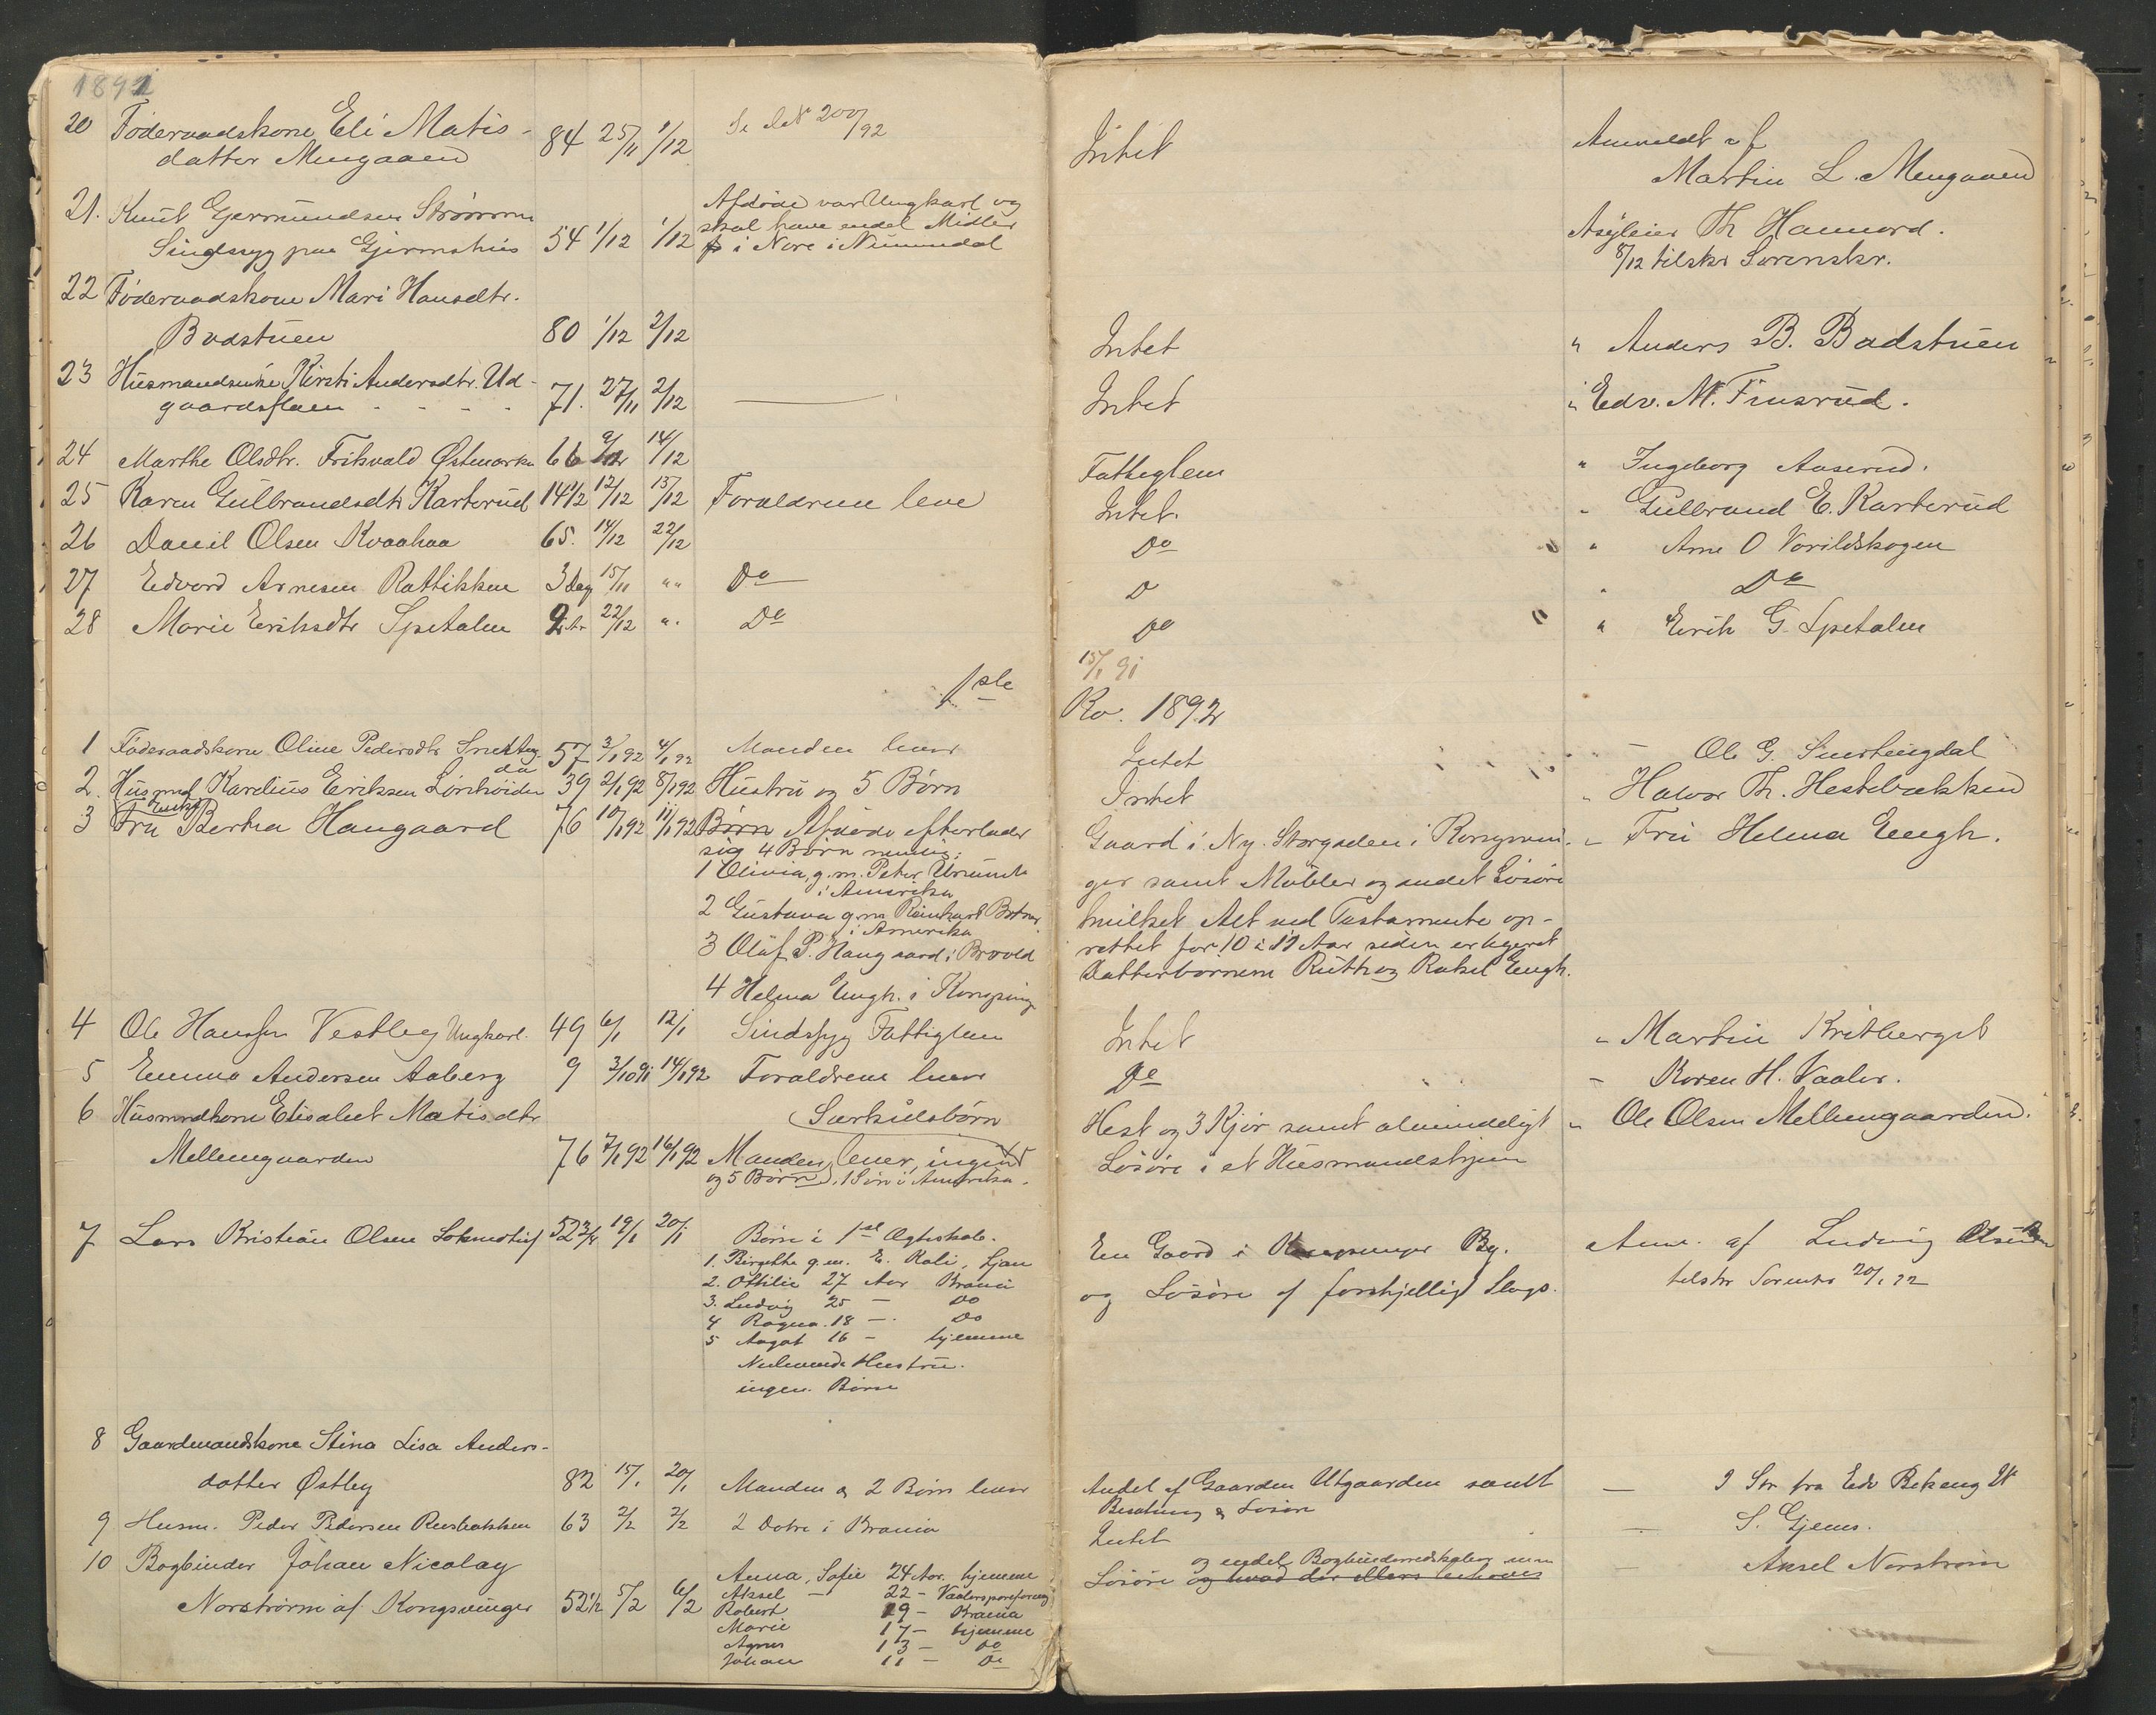 1891
20 Föderaadskone Eli Matis-
datter Mengaaen 84 25/11 1/12 Se 200/92 Intet Anmeldt af
Martin L. Mengaaen
21. Knut Gjermundsen Strömmen Afdöde var Ungkarl og
skal have endel Midler
Sindssyg paa Gjermshus 54 1/12 1/12 i Nore i Nummedal Asyleier Th Hamnord.
8/12 tilskr Sorenskr.
22 Föderaadskone Mari Hansdtr.
Badstuen 80 1/12 2/12 Intet " Anders B. Badstuen
23 Husmandsenke Kirsti Andersdtr. Ud-
gaardsflaen 71. 27/11 2/12 — Intet " Edv. M. Finsrud.
24 Marthe Olsdtr. Frikvald Østmarka 66 9/12 14/12 Fattiglem " Ingeborg Aaserud.
25 Karen Gulbrandsdtr Karterud 14 1/2 12/12 15/12 Forældrene leve Intet. " Gulbrand E. Karterud
26 Daniel Olsen Kvaahaa 65. 14/12 22/12 Do " Arne O Varildskogen
27 Edvard Arnesen Rattikken 3 Dag 15/11 "" Do D " Do
28 Marie Eriksdtr Spetalen 2 Ar 22/12 " Do Do " Erik G. Spetalen
15/1 91
1ste Kv. 1892
1 Föderaadskone Oline Pedersdtr Snerting-
dal 57 3/1 92 4/1 92 Manden lever Intet — Ole G. Snertingdal
2. Husmd Karelius Eriksen Lörköiden 39 2/1 92 8/1 92 Hustru og 5 Börn Intet " Halvor Th. Hestebækken
3 Enke Fru Bertha Haugaard 76 10/1 92 11/1 92 Börn Afdöde efterlader Gaard i Ny. Storgaden i Kongsvin- " Fru Helma Engh.
sig 4 Börn nemlig:
1 Olivia, g.m. Peter
i Amerika ger samt Möbler og andet Lösöre
2 Gustava g.m. Reinhart
i Amerika hvilket Alt ved Testamente op-
3 Olaf P. Haugaard i Brovold rettet for 10 à 11 Aar siden er legeret
Datterbörnene Ruth og Rakel Engh.
4 Helma Engh. i Kongsving
4 Ole Hanssen Vestby Ungkarl. 49 6/1 12/1 Sindssyg Fattiglem Intet " Martin Kritberget
5 Emma Andersen Aaberg 9 3/10 91 14/1 92 Forældrene lever Do — Karen H. Vaaler.
6 Husmdkone Elisabet Matisdtr Særkulsbörn Hest og 3 Kjör samt almindeligt " Ole Olsen Mellemgaarden.
Mellemgaarden 76 7/1 92 16/1 92 Manden lever, ingen Lösöre i et Husmandshjem
og 5 Börn, 1 Sön i Amerika.
7 Lars Kristian Olsen Lokmotivf 52 3/4 19/1 20/1 Börn i 1ste Ægteskab. En Gaard i Kongsvinger By. Anm. af Ludvig Olsen
1. Birgitte g.m. E. Rali, Ljan
2. Ottilie 27 Aar Krania og Lösöre af forskjelligt Slags. tilskr Sorenskr 20/1 92
3. Ludvig 25 — Do
4 Ragna. 18 — Do
5 Aagot 16 — hjemme
Nulevende Hustru.
ingen Börn
8 Gaardmandskone Stina Lisa Anders-
datter Østby 82 15/1 20/1 Manden & 2 Börn lever Andel af Gaarden Utgaarden samt
Besætning & Lösöre —
9 Husm. Peder Pedersen Rusbakken 63 2/2 2/2 2 Dotre i Krania Intet — S. Gjems.
10 Bogbinder Johan Nicolay Anna, Sofie 24 Aar. hjemme og endel Bogbinderredskaber — Aksel Norström
Norström af Kongsvinger 52 1/2 5/2 6/2 Aksel — 22 — Lösöre og hvad der ellers behöves
Robert 19 — Krania
Marie 17 — hjemme
Agnes 13 — Do
Johan 11 — Do